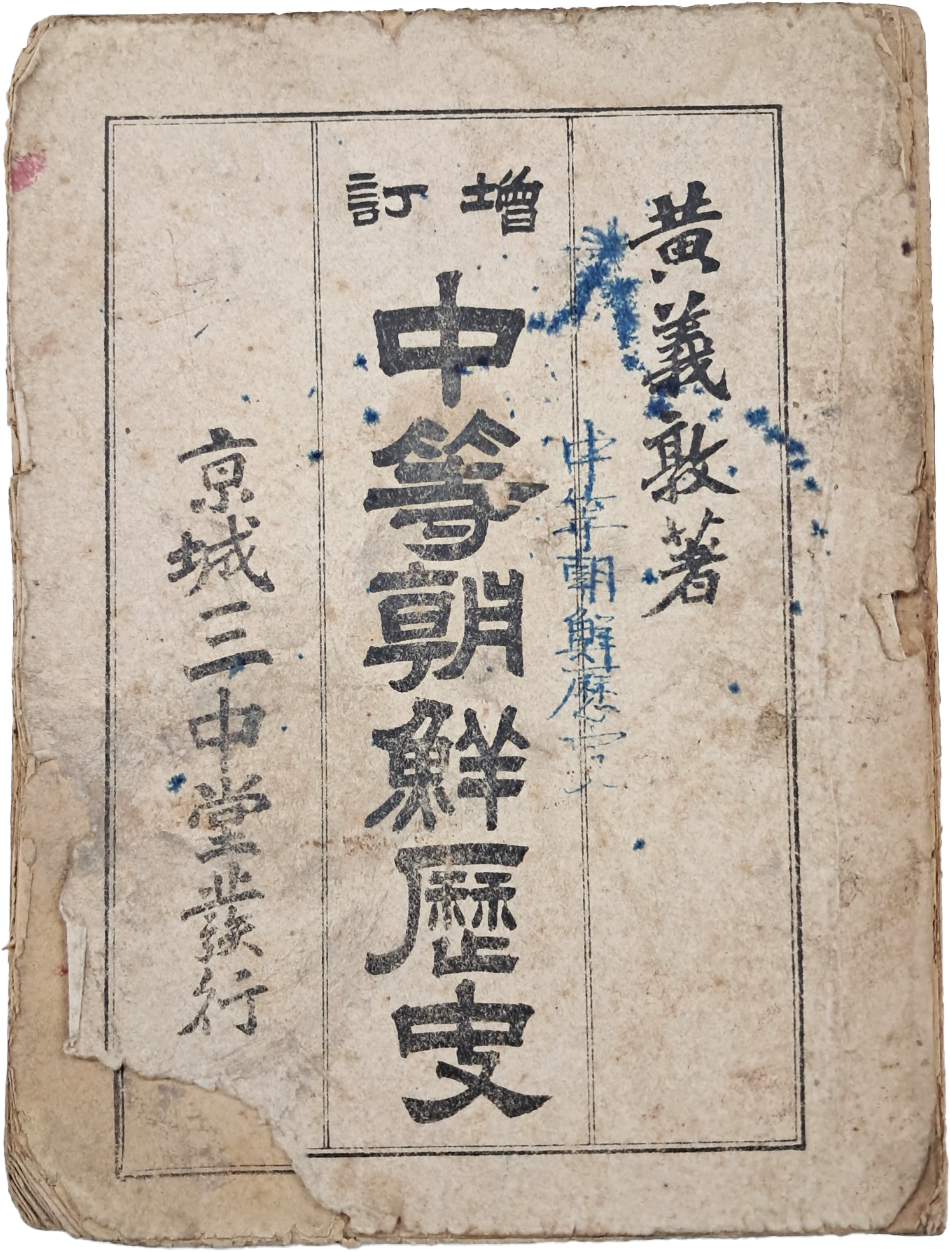 黃義敦著
中等朝鮮歷史
增訂
中等朝鮮歷史
京城三中堂發行